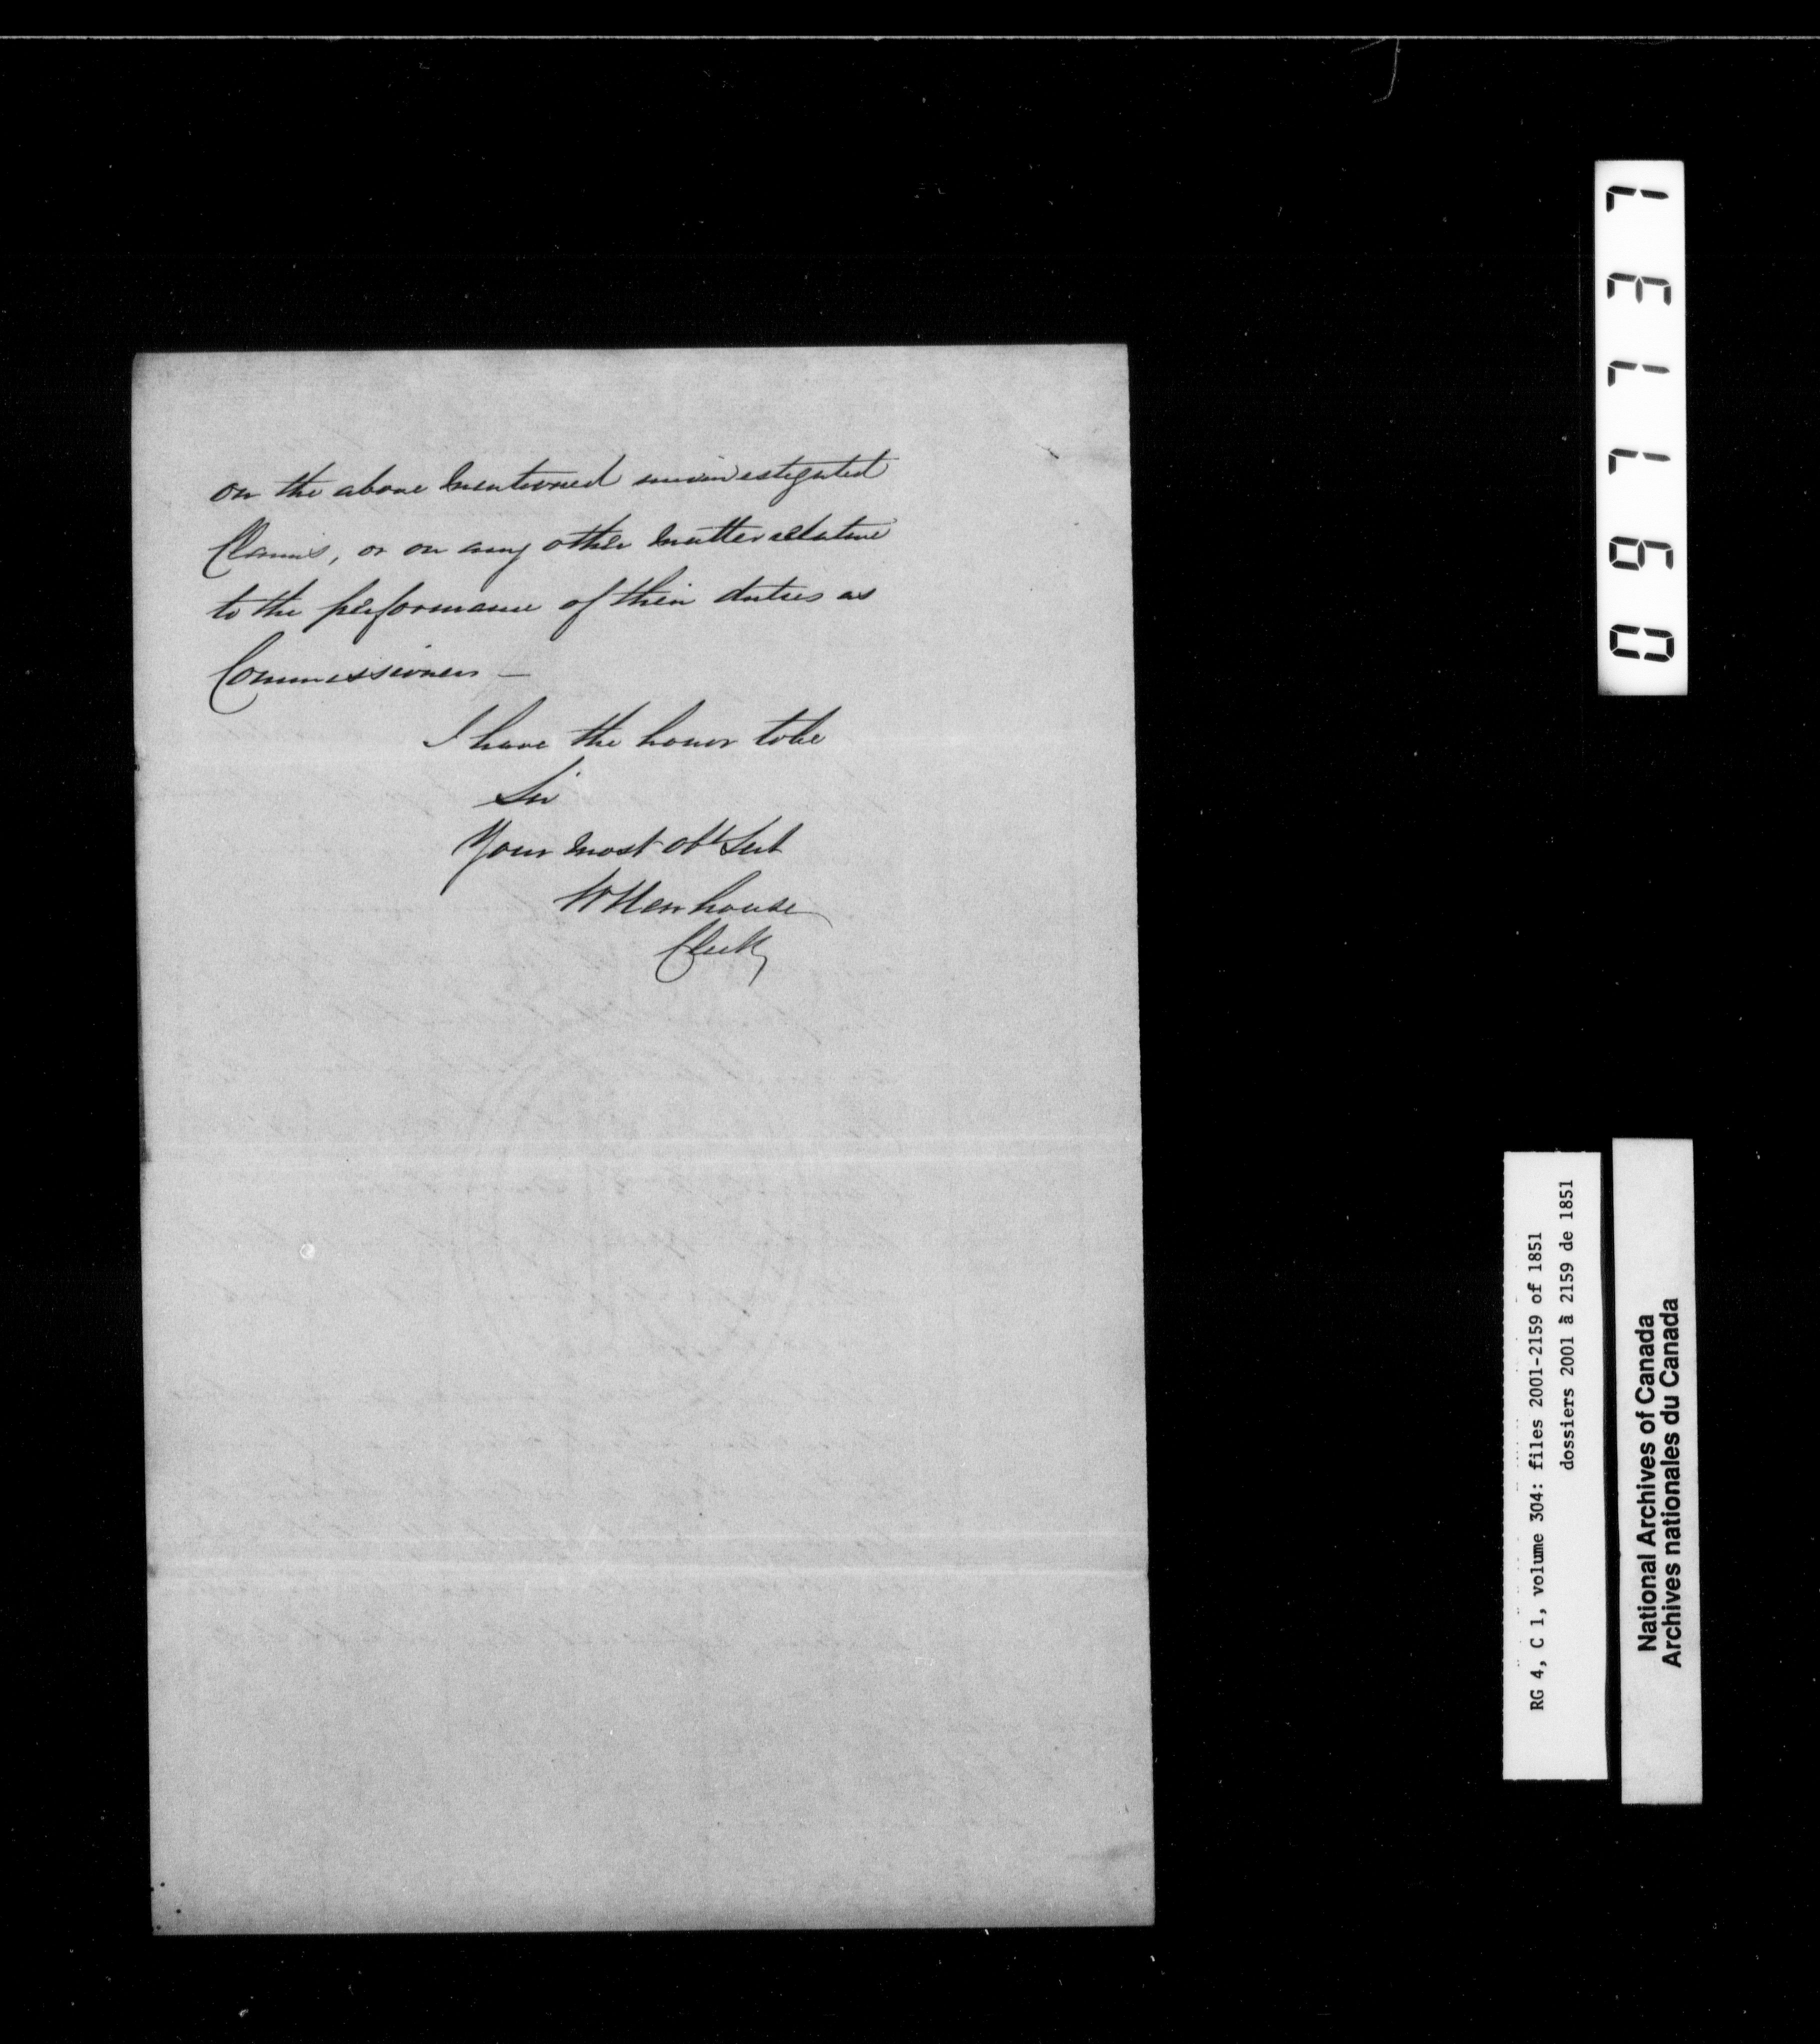 on the above mentioned uninvestigated
Claims, or on any other matter relative
to the performance of their duties as
Commissioners —
I have the honor to be
Sir
Your most obt Sert
W Newhouse
Clerk
097737
RG 4, C 1, volume 304: files 2001-2159 of 1851
dossiers 2001 à 2159 de 1851
National Archives of Canada
Archives nationales du Canada